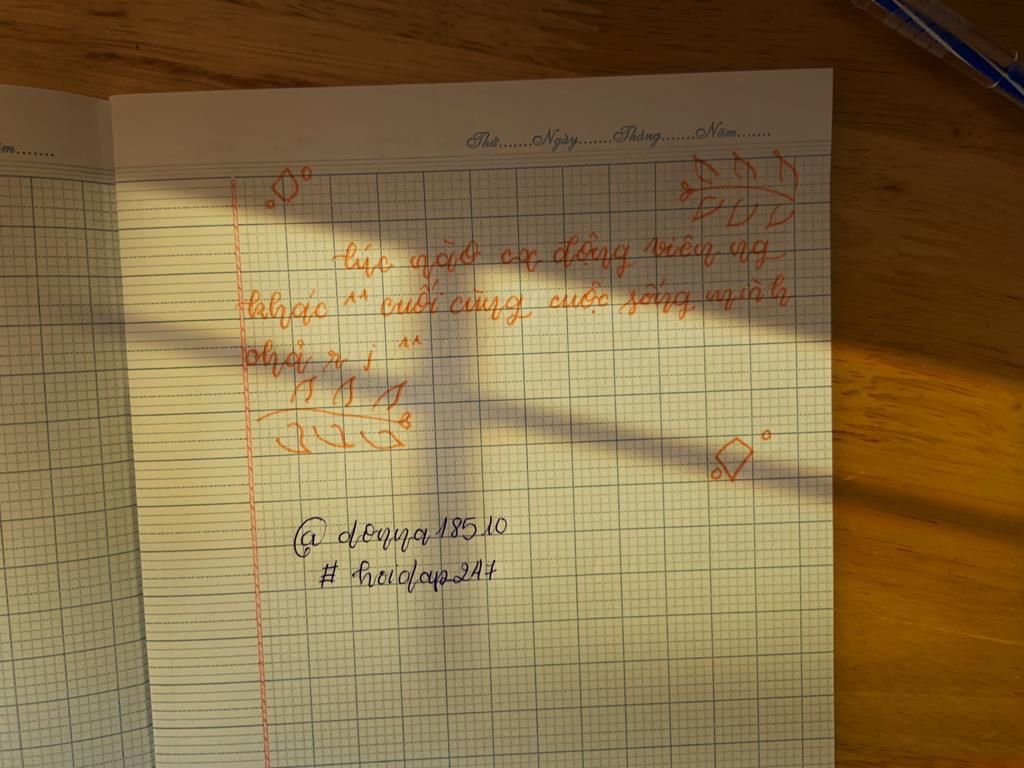 m.......
Thứ.......Ngày.......Tháng.......Năm.......
lúc nào cx động viên ng
khác " cuối cùng cuộc sống mình
@ donna18510
# hoidap247